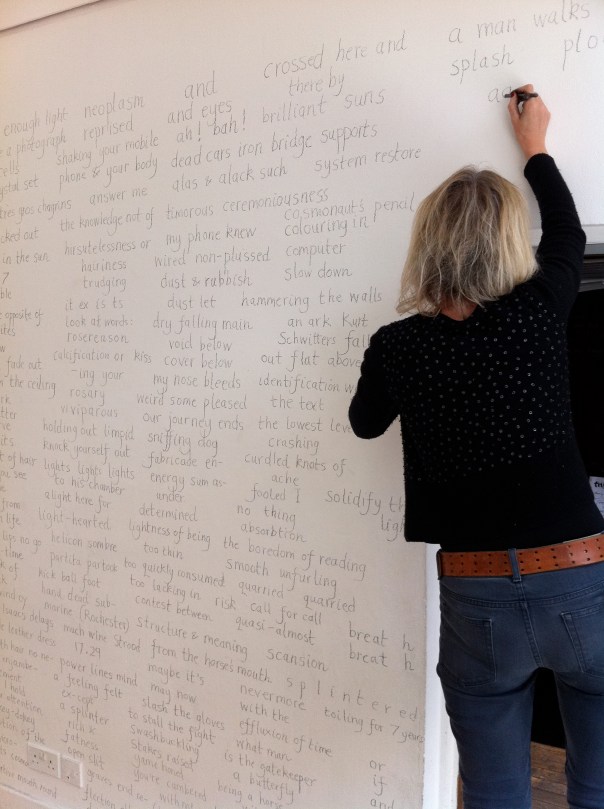 a man walks
crossed here and splash plo
enough light neoplasm and there by
a photograph reprised and eyes brilliant suns
cells shaking your mobile ah! bah! iron bridge supports
set phone & your body dead cars system restore
answer me alas & alack such
the knowledge out of timorous ceremoniousness
out hirsutelessness or my phone knew cosmonaut's pencil
in the sun hairiness wired non-plussed colouring in
7 trudging dust & rubbish computer
it ex is ts dust let slow down
opposite of look at words: hammering the walls
rosereason dry falling main an ark Kurt
calcification or kiss void below Schwitters fall
fade out -ing your cover below out flat above
the ceiling rosary my nose bleeds identification
viviparous weird some pleased the text
holding out limpid our journey ends the lowest leve
knock yourself out sniffing dog crashing
of hair lights lights lights fabricade en- curdled knots of
see to his chamber energy sum as- ache
alight here for under fooled I solidify th
from light-hearted determined no thing ligh
life helicon sombre lightness of being absorbtion
no go partita partook too thin the boredom of reading
time kick ball foot too quickly consumed smooth unfurling
of hand deal sub- too lacking in quarried quarried
marine (Rochester) contest between risk call for call
delays much wine strood structure & meaning quasi-almost breat h
leather dress 17.29 from the horse's mouth scansion breat h
power lines mind maybe it's s p l i n t e r e d
a feeling felt may now nevermore toiling for 7 years
hold ex-cept slash the gloves with the
attention a splinter to stall the fight effluxion of time
rich & swashbuckling what man or
fatness stakes raised is the gatekeeper if
open slit gone haus a butterfly and
of the mind you're cumbered being a horse
mouth mind